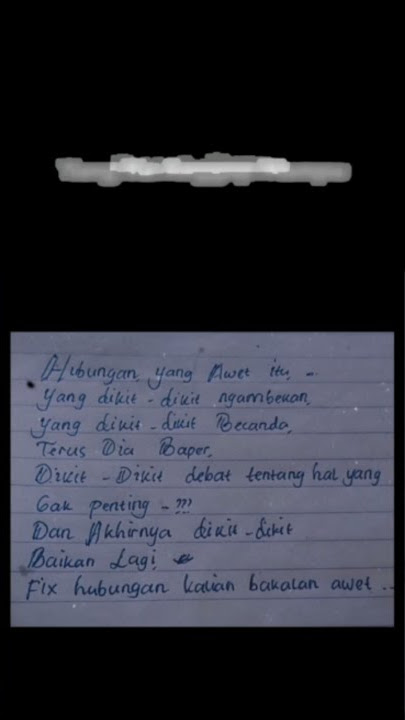 Hubungan yang Awet itu -
Yang dikit - dikit ngambekan,
Yang dikit - dikit Becanda,
Terus Dia Baper,
Dikit - Dikit debat tentang hal yang
Gak penting - ???
Dan Akhirnya dikit - dikit
Baikan Lagi
Fix hubungan kalian bakalan awet ..